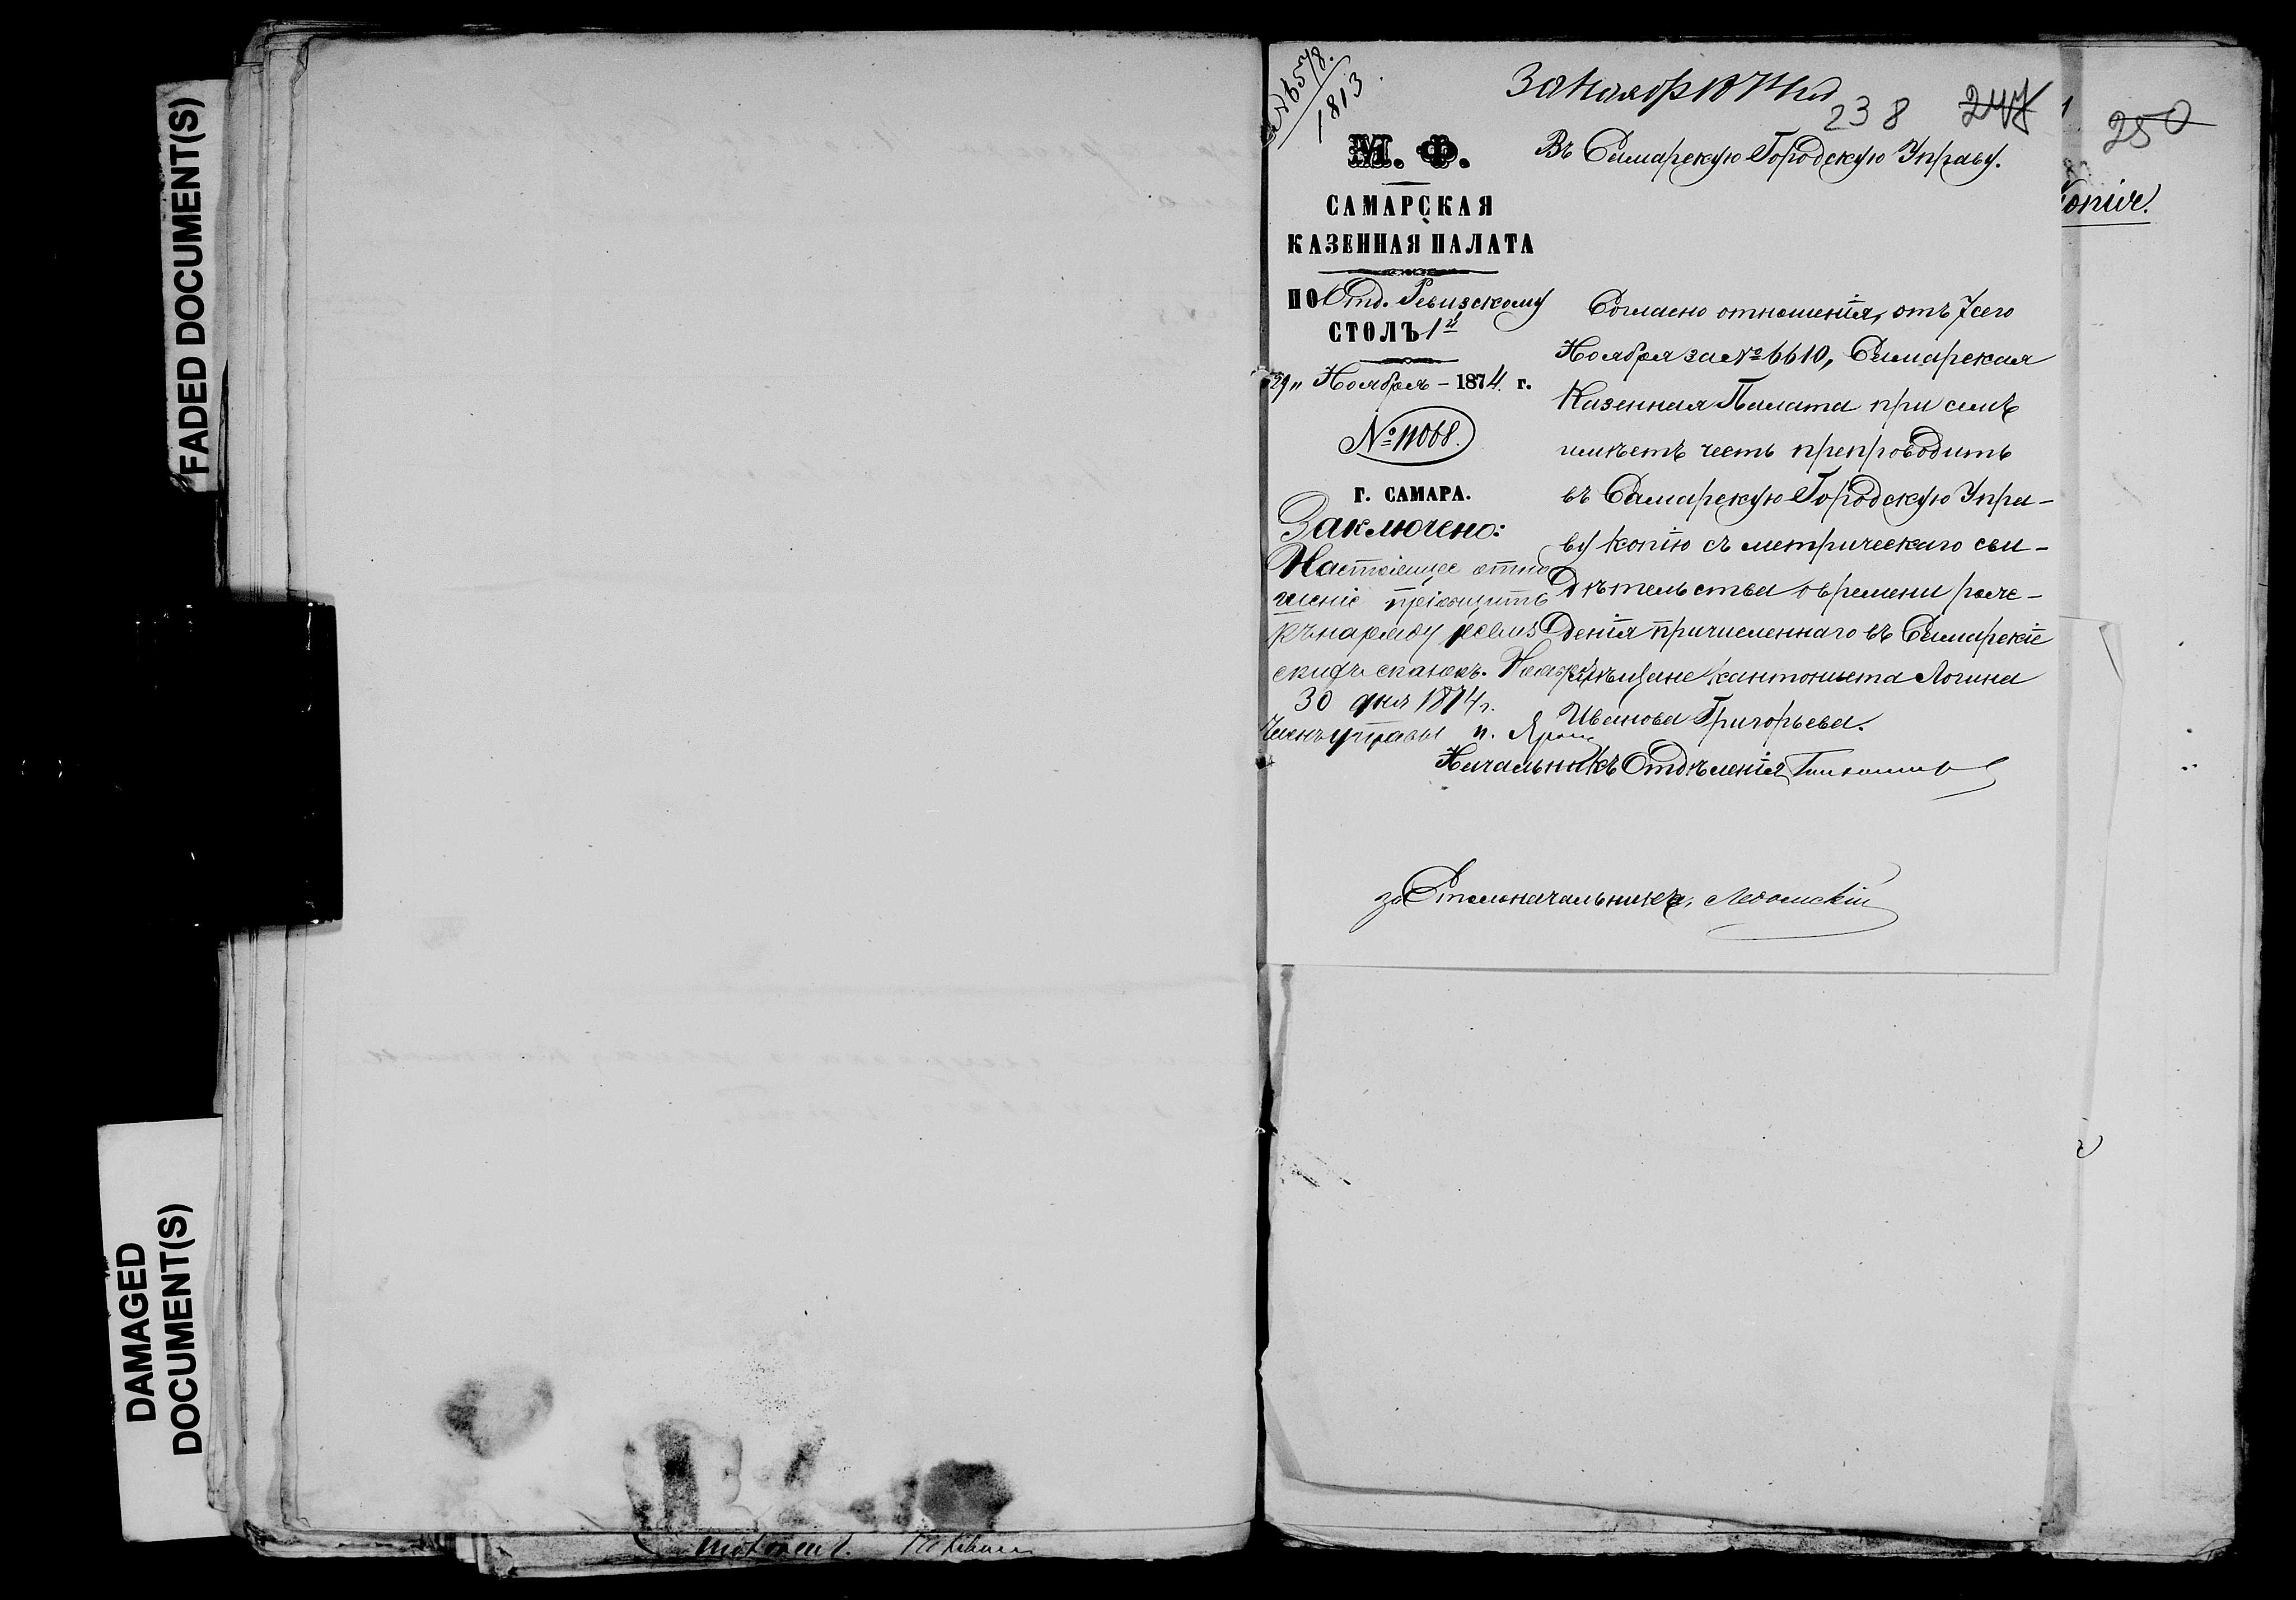 FADED DOCUMENT(S)
DAMAGED
DOCUMENT(S)
1813
30 Ноября 1874 г.
238
250
М. Ф.
САМАРСКАЯ
КАЗЕННАЯ ПАЛАТА
ПО Отд. Ревизскому
СТОЛЪ 1й
29" Ноября - 1874. г.
№ 11068.
Г. САМАРА.
Въ Самарскую Городскую Управу.
Согласно отношенія, отъ 7 сего
Ноября за № 6610, Самарская
Казенная Палата при семъ
имѣетъ честь препроводить
въ Самарскую Городскую Упра-
ву копію съ метрическаго сви-
дѣтельства о времени рож-
денія причисленнаго въ Самарскіе
мѣщане кантониста Логина
Иванова Григорьева.
Начальникъ Отдѣленія
за Столоначальника,
Заключено:
Настоящее отно
шеніе пріобщить
къ наряду ревиз
скихъ сказокъ. Ноября
30 дня 1874 г.
Членъ управы
копія.